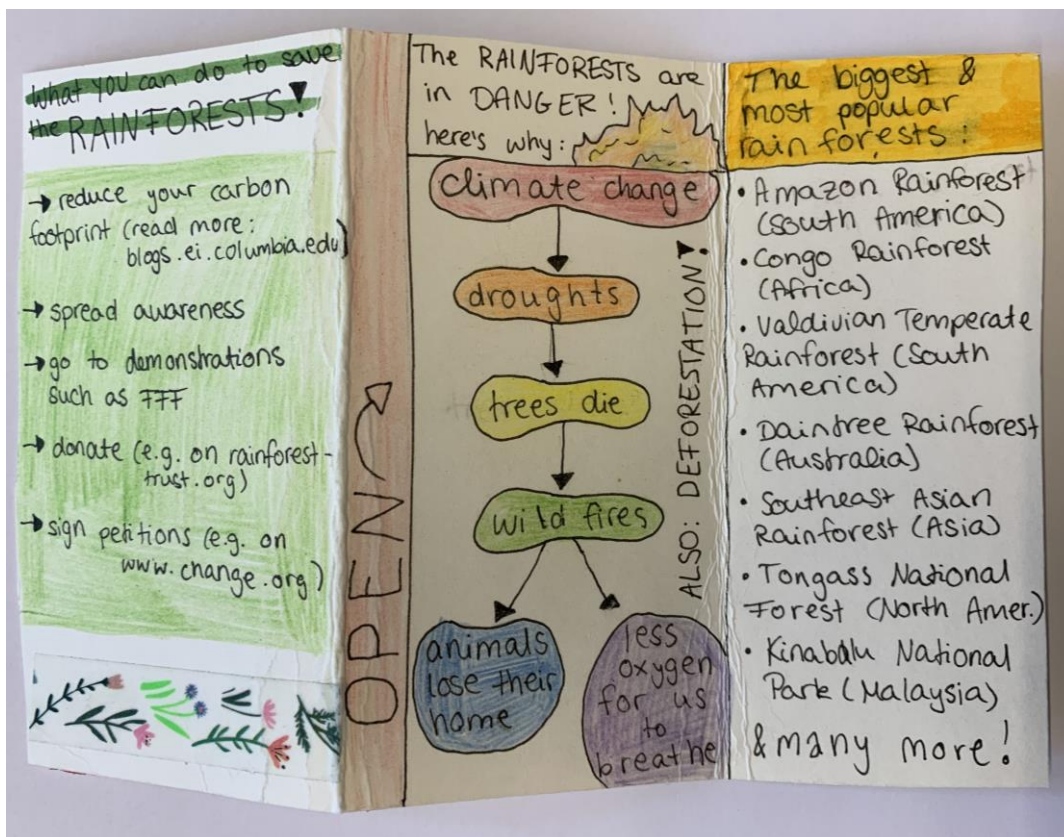 What you can do to save
the RAINFORESTS!
→ reduce your carbon
footprint (read more:
blogs.ei.columbia.edu)
→ spread awareness
→ go to demonstrations
such as FFF
→ donate (e.g. on rainforest-
trust.org)
→ sign petitions (e.g. on
www.change.org)
OPEN
The RAINFORESTS are
in DANGER!
here's why:
climate change
droughts
trees die
wild fires
animals
lose their
home
less
oxygen
for us
to
breathe
ALSO: DEFORESTATION!
The biggest &
most popular
rain forests:
• Amazon Rainforest
(South America)
• Congo Rainforest
(Africa)
• Valdivian Temperate
Rainforest (South
America)
• Daintree Rainforest
(Australia)
• Southeast Asian
Rainforest (Asia)
• Tongass National
Forest (North Amer.)
• Kinabalu National
Park (Malaysia)
& many more!